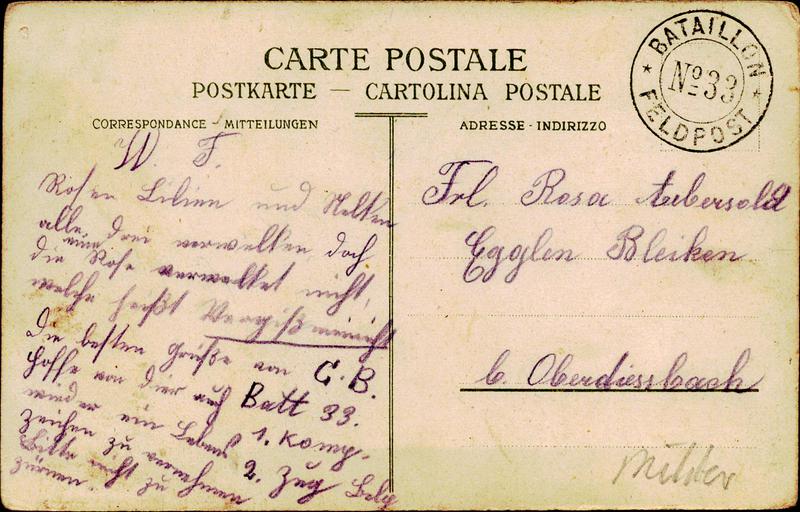 CARTE POSTALE
POSTKARTE — CARTOLINA POSTALE
CORRESPONDANCE - MITTEILUNGEN
ADRESSE - INDIRIZZO
BATAILLON
Nº 33
FELDPOST
W. F.
Rosen Lilien und Nelken
alle drei verwelken doch
die eine Rose verwelket nicht,
welche heißt Vergißmeinicht
Die besten Grüße von G. B.
Hoffe von dir auch Batt 33.
wieder ein Lebens 1. Komp.
zeichen zu vernehmen 2. Zug Belp
Bitte nicht zu
zürnen.
Frl. Rosa Aebersold
Egglen Bleiken
b. Oberdiessbach